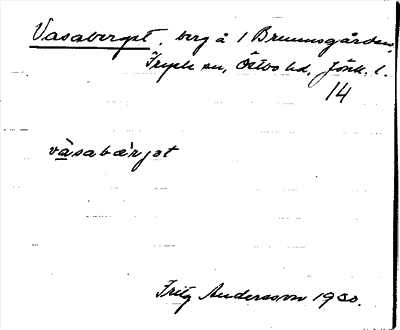 Vasaberget, berg å 1 Brunnsgården,
sn, Östbo hd, Jönk. l.
14
vàsabærjət
Fritz Andersson 1930.